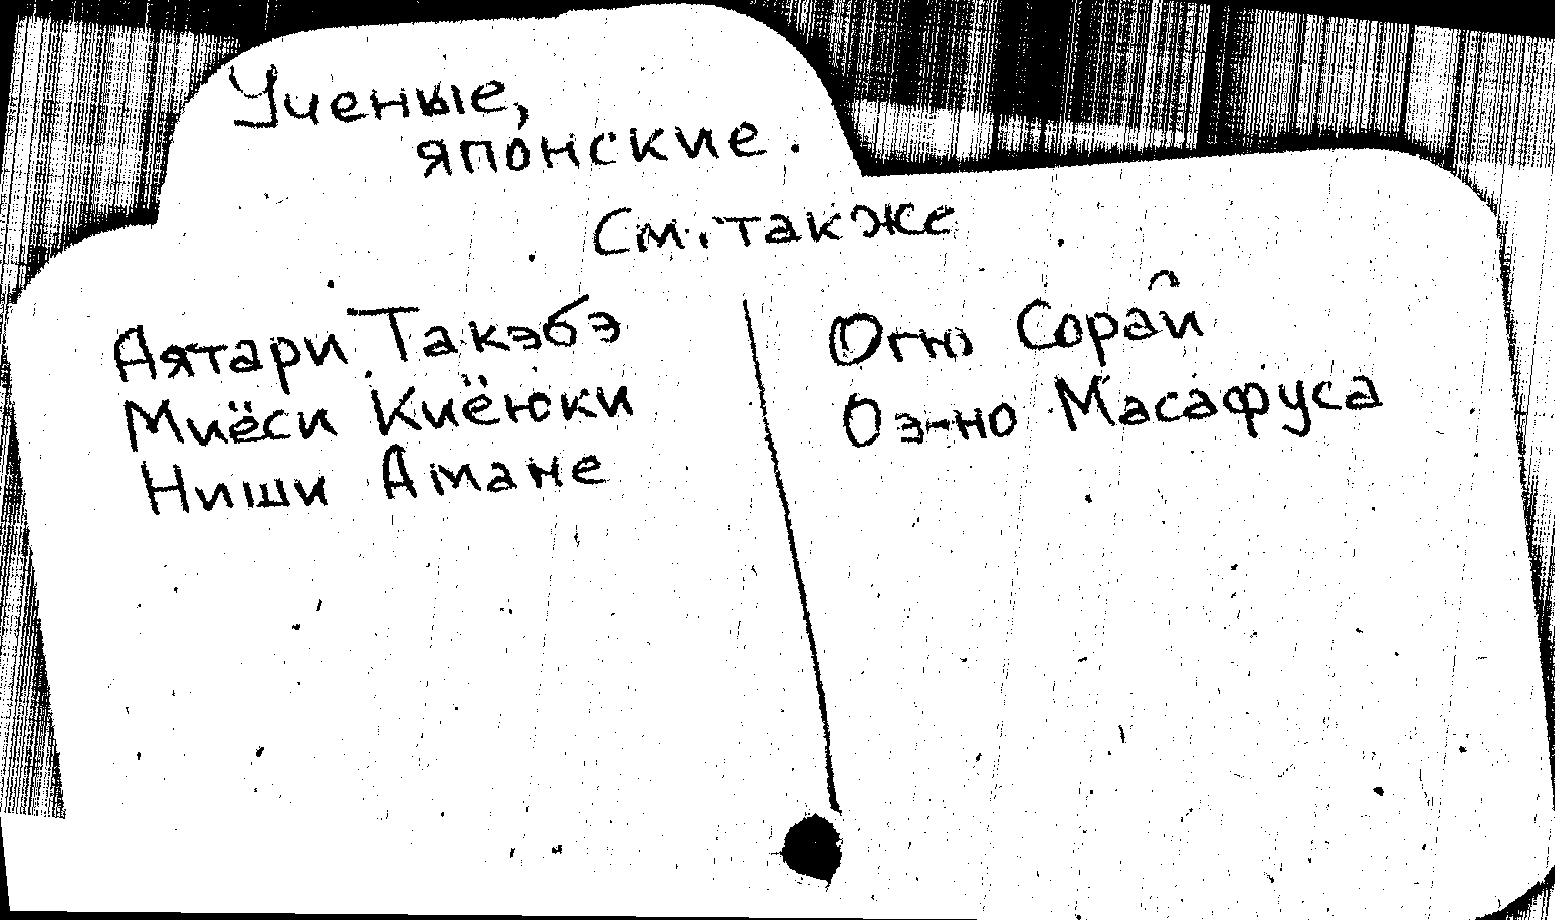 Ученые,
японские.
См. также
Аятари Такэбэ
Миёси Киёюки
Ниши Амане
Огю Сорай
Оэ-но Масафуса